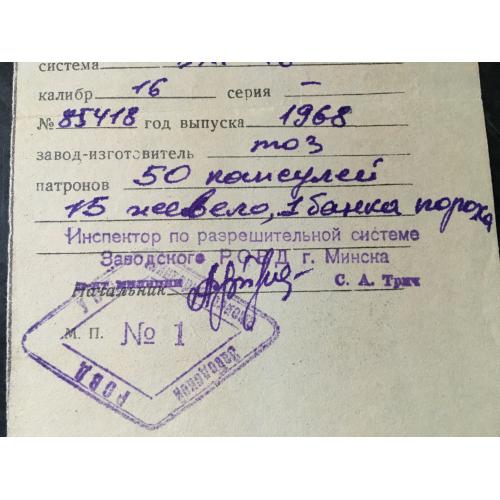 система
калибр 16 серия —
№ 85418 год выпуска 1968
завод-изготовитель тоз
патронов 50 капсулей
15 жевело, 1 банка пороха
Инспектор по разрешительной системе
Заводского РОВД г. Минска
Начальник С. А. Трич
М. П. № 1
Заводский
РОВД